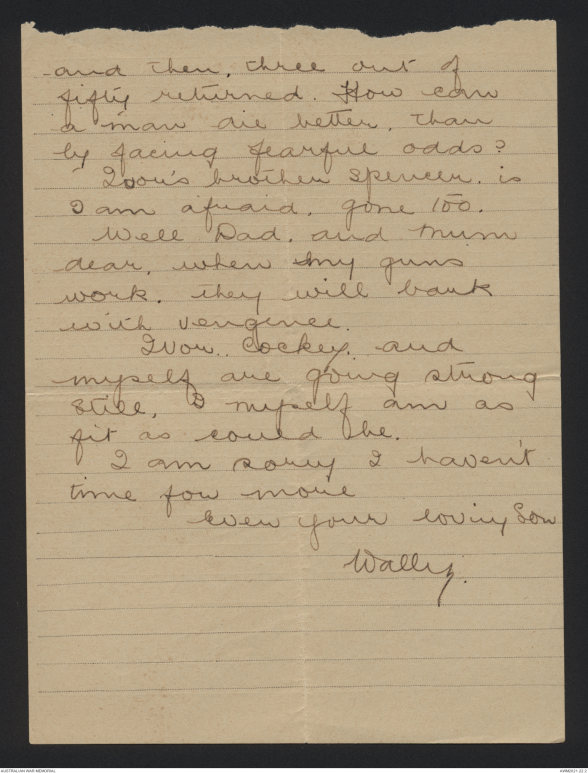 and then, three out of
fifty returned. How can
a man die better, than
by facing fearful odds?
Ivor's brother Spencer, is
I am afraid, gone too.
Well Dad, and Mum
dear, when my guns
work, they will bark
with vengence.
Ivor, Cockey, and
myself are going strong
still, I myself am as
fit as could be.
I am sorry I haven't
time for more
Ever your loving Son
Wally.
AUSTRALIAN WAR MEMORIAL